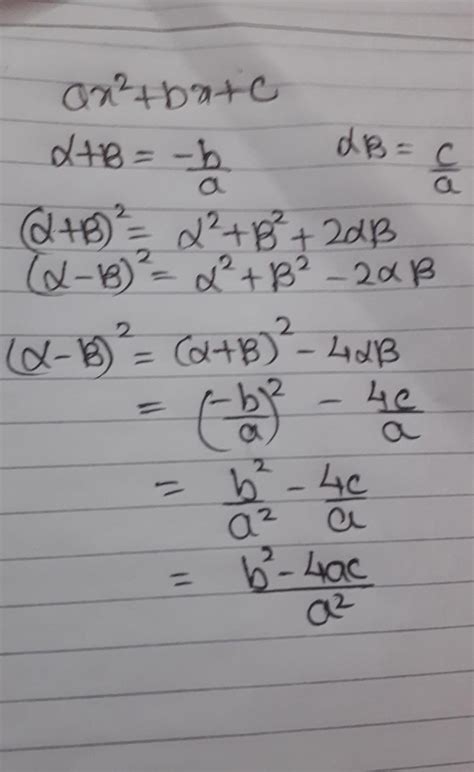 ax²+bx+c
α+β = -b/a αβ = c/a
(α+β)² = α²+β²+2αβ
(α-β)² = α²+β²-2αβ
(α-β)² = (α+β)²-4αβ
= (-b/a)² - 4c/a
= b²/a² - 4c/a
= b²-4ac/a²